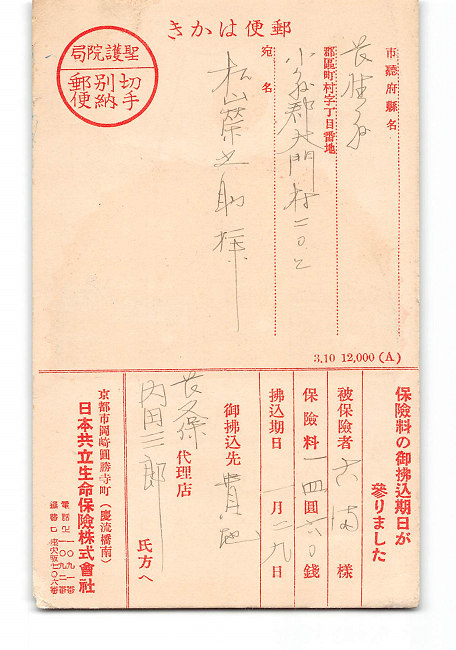 郵便はかき
聖護院局
切手
別納
郵便
市廳府縣名
郡區町村字丁目番地
小縣郡大門村
宛名
松山榮之助様
3.10 12,000 (A)
保險料の御拂込期日が
參りました
被保險者 様
保險料 一四圓六〇錢
拂込期日 一月二九日
御拂込先 貴地
長久保代理店
内田三郎 氏方へ
京都市岡崎圓勝寺町(慶流橋南)
日本共立生命保險株式會社
電話上一〇九一番
一〇九二番